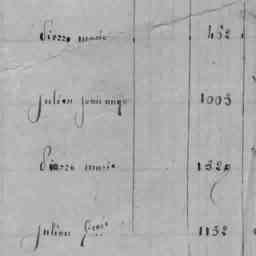 Pierre marie 452
julien jean ange 1003
Pierre marie 1320
julien 1152